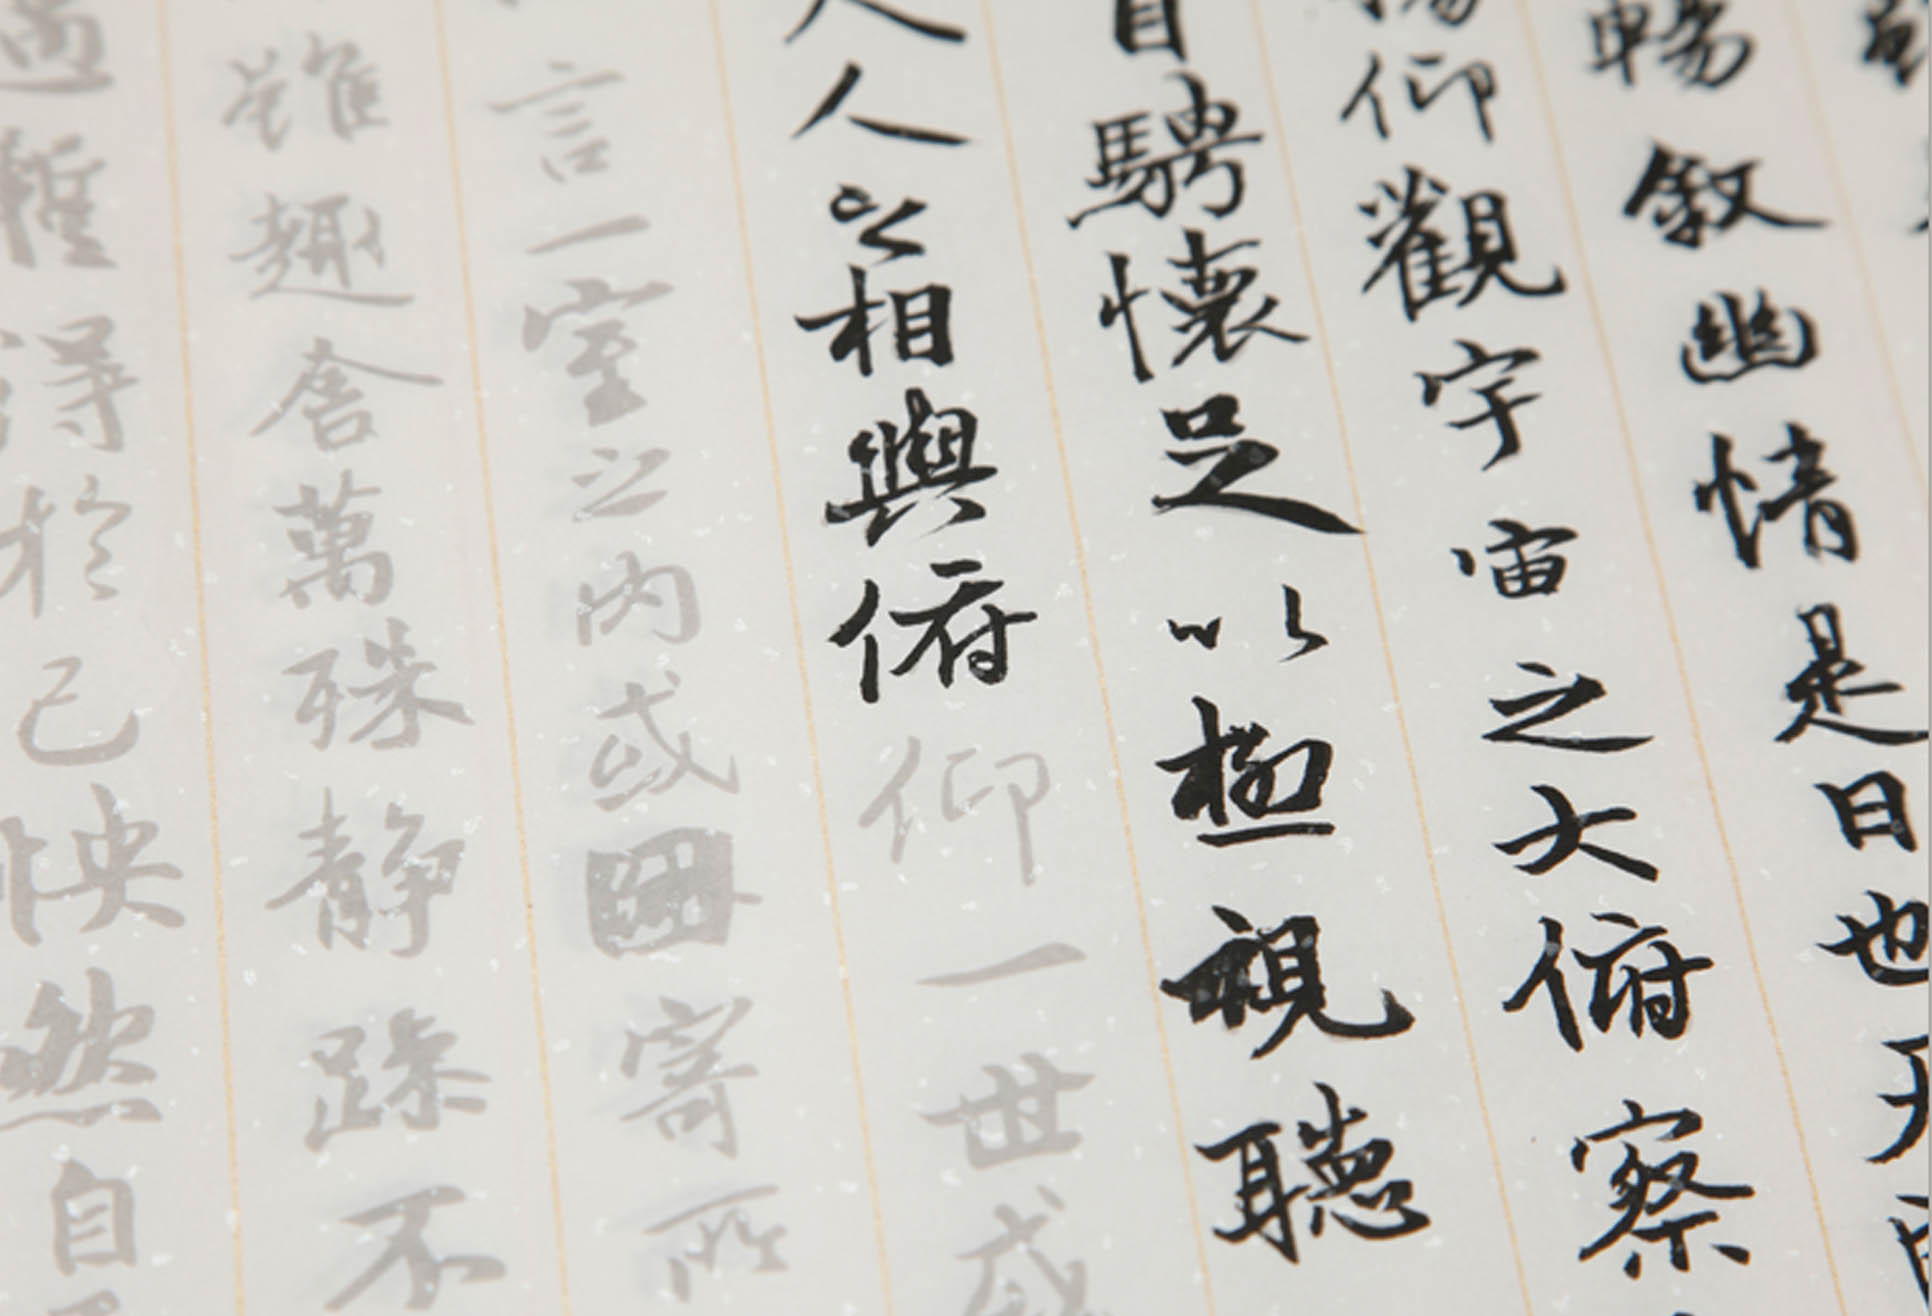 暢敘幽情是日也天
仰觀宇宙之大俯察
目騁懷足以極視聽
人之相與俯仰一世或
言一室之內或因寄所
雖趣舍萬殊靜躁不
遇暫得於己怏然自